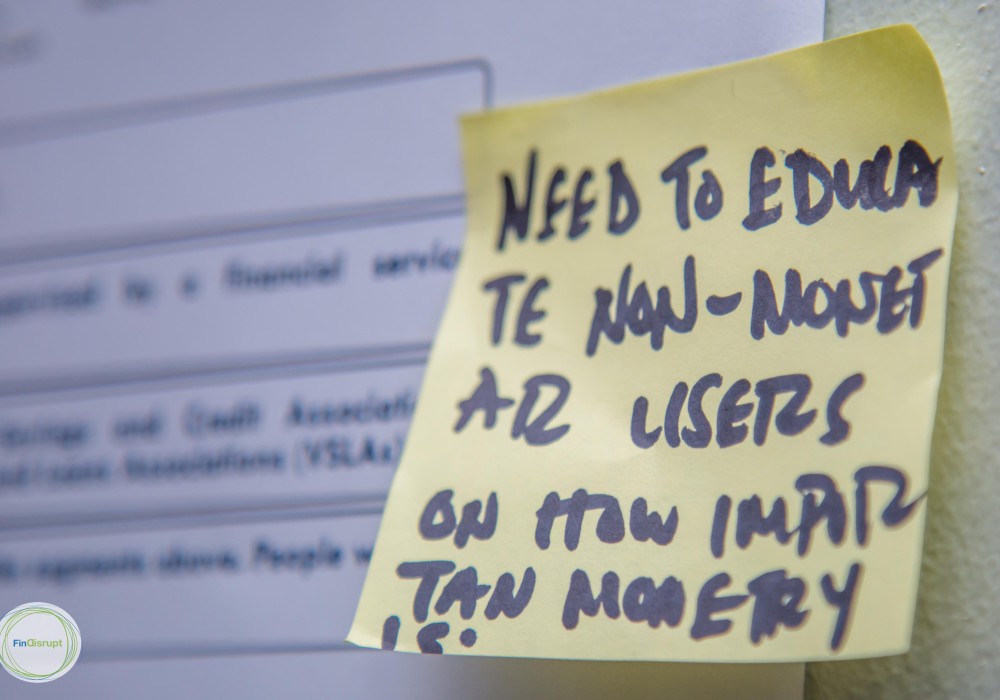 a financial service
Savings and Credit Associati
Loans Associations (VSLAs)
segments above. People w
NEED TO EDUCA
TE NON-MONET
AR USERS
ON HOW IMPAR
TAN MONERY
IS.
FinDisrupt